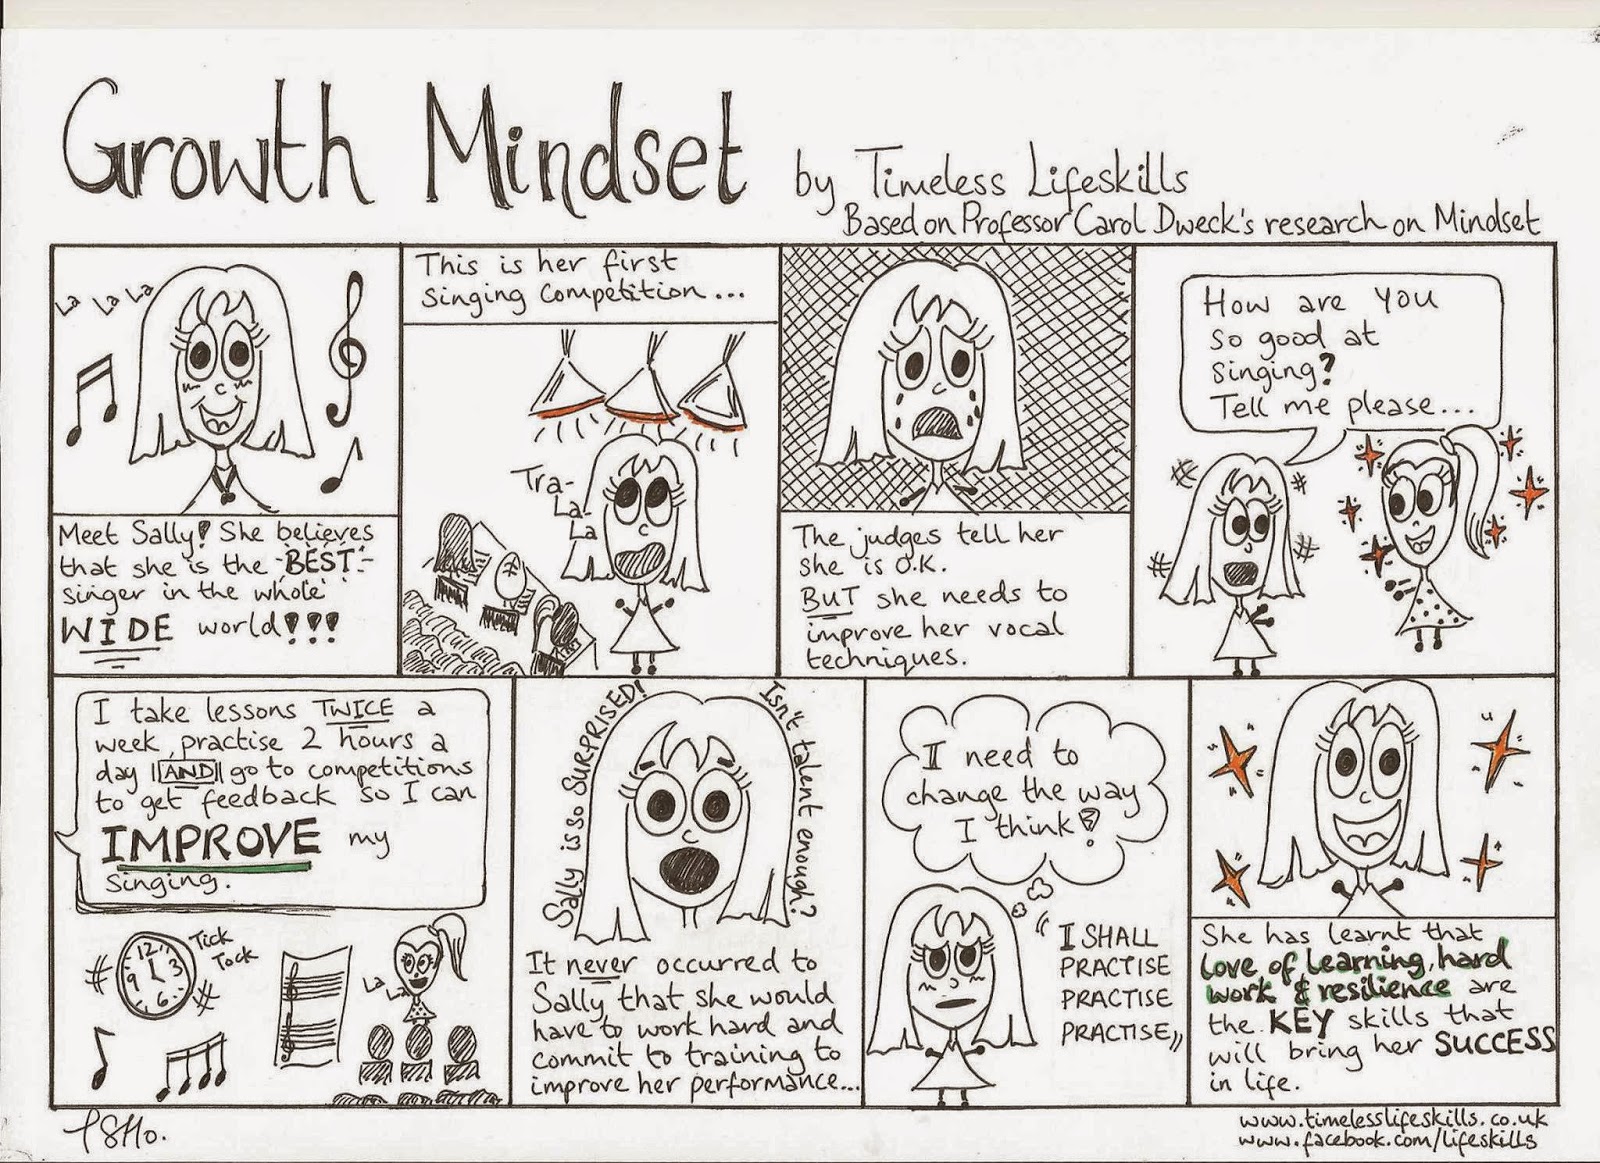 Growth Mindset by Timeless Lifeskills
Based on Professor Carol Dweck's research on Mindset
La La La
Meet Sally! She believes
that she is the BEST
singer in the whole
WIDE world!!!
This is her first
singing competition...
Tra-
La-
La
The judges tell her
she is O.K.
BUT she needs to
improve her vocal
techniques.
How are YOU
so good at
singing?
Tell me please...
I take lessons TWICE a
week, practise 2 hours a
day AND go to competitions
to get feedback so I can
IMPROVE my
singing.
12
3
6
9
Tick
Tock
La La
Sally is so SURPRISED!
Isn't talent enough?
It never occurred to
Sally that she would
have to work hard and
commit to training to
improve her performance...
I need to
change the way
I think!
"I SHALL
PRACTISE
PRACTISE
PRACTISE"
She has learnt that
love of learning, hard
work & resilience are
the KEY skills that
will bring her SUCCESS
in life.
www.timelesslifeskills.co.uk
www.facebook.com/lifeskills